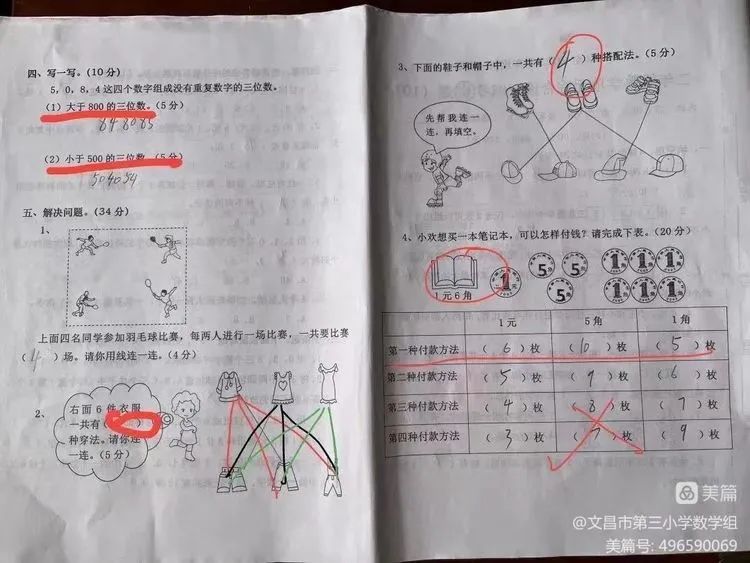 四、写一写。(10 分)
5，0，8，4 这四个数字组成没有重复数字的三位数。
(1) 大于 800 的三位数。(5 分)
848085
(2) 小于 500 的三位数。(5 分)
504054
五、解决问题。(34 分)
1、
上面四名同学参加羽毛球比赛，每两人进行一场比赛，一共要比赛
( 4 ) 场。请你用线连一连。(4 分)
2、
右面 6 件衣服
一共有 ( )
种穿法。请你连
一连。(5 分)
3、下面的鞋子和帽子中，一共有 ( 4 ) 种搭配法。(5 分)
先帮我连一
连，再填空。
4、小欢想买一本笔记本，可以怎样付钱？请完成下表。(20 分)
1 元 6 角
1 5 5 5 1 1 1 1 1 1
1 元 5 角 1 角
第一种付款方法 ( 6 ) 枚 ( 10 ) 枚 ( 5 ) 枚
第二种付款方法 ( 5 ) 枚 ( 9 ) 枚 ( 6 ) 枚
第三种付款方法 ( 4 ) 枚 ( 8 ) 枚 ( 7 ) 枚
第四种付款方法 ( 3 ) 枚 ( 7 ) 枚 ( 9 ) 枚
美篇
@文昌市第三小学数学组
美篇号: 496590069